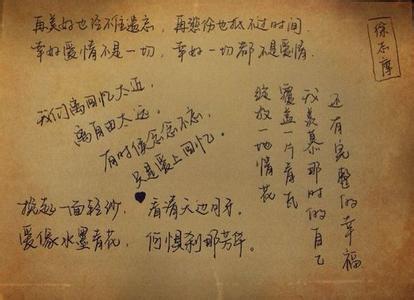 再美好也经不住遗忘，再悲伤也抵不过时间。
幸好爱情不是一切，幸好一切都不是爱情。
徐志摩
我们离回忆太近，
离自由太远。
有时候念念不忘，
只是爱上回忆。
还有完整的幸福
我羡慕那时的自己
覆盖一片青瓦
绽放一地情花
挽起一面轻纱，看清天边月牙。
爱像水墨青花，何惧刹那芳华。